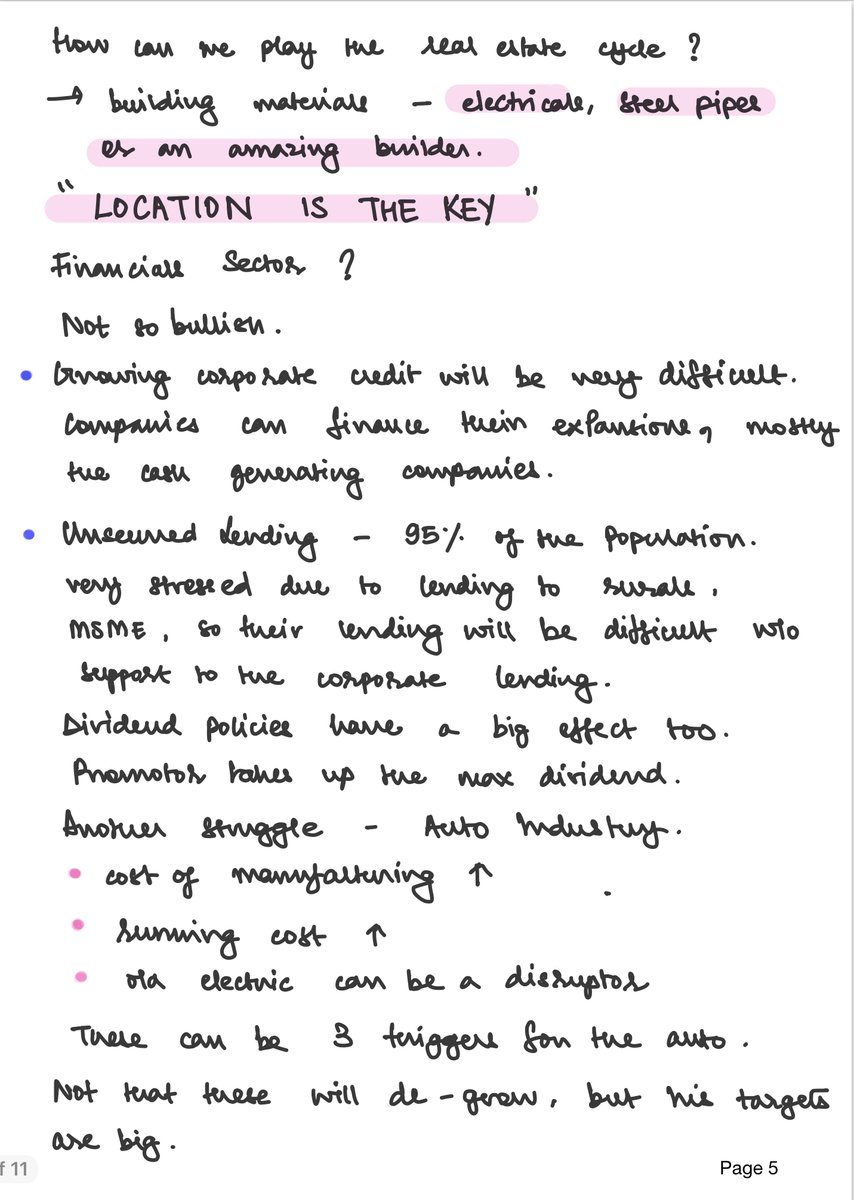 How can we play the real estate cycle ?
→ building materials - electricals, steel pipes
or an amazing builder.
"LOCATION IS THE KEY"
Financials Sector ?
Not so bullish.
• Growing corporate credit will be very difficult.
Companies can finance their expansions, mostly
the cash generating companies.
• Unsecured Lending - 95% of the Population.
very stressed due to lending to rurals,
MSME, so their lending will be difficult w/o
support to the corporate lending.
Dividend policies have a big effect too.
Promotor takes up the max dividend.
Another struggle - Auto Industry.
• cost of manufacturing ↑
• running cost ↑
• ola electric can be a disruptor
These can be 3 triggers for the auto.
Not that these will de-grow, but his targets
are big.
f 11
Page 5